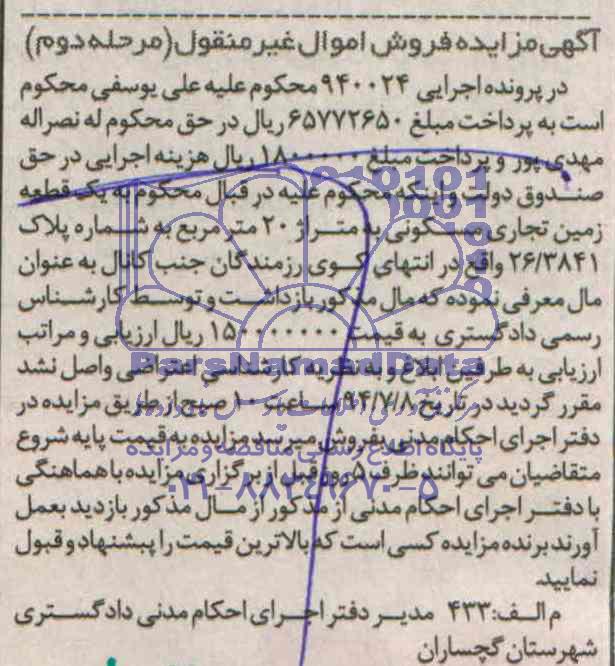 آگهی مزایده فروش اموال غیر منقول (مرحله دوم)
در پرونده اجرایی ۹۴۰۰۲۴ محکوم علیه علی یوسفی محکوم
است به پرداخت مبلغ ۶۵۷۷۲۶۵۰ ریال در حق محکوم له نصراله
مهدی پور و پرداخت مبلغ ۱۸۰۰۰۰۰ ریال هزینه اجرایی در حق
صندوق دولت و اینکه محکوم علیه در قبال محکوم به یک قطعه
زمین تجاری مسکونی به متراژ ۲۰ متر مربع به شماره پلاک
۲۶/۳۸۴۱ واقع در انتهای کوی رزمندگان جنب کانال به عنوان
مال معرفی نموده که مال مذکور بازداشت و توسط کارشناس
رسمی دادگستری به قیمت ۱۵۰۰۰۰۰۰۰ ریال ارزیابی و مراتب
ارزیابی به طرفین ابلاغ و به نظریه کارشناسی اعتراضی واصل نشد
مقرر گردید در تاریخ ۹۴/۷/۸ ساعت ۱۰ صبح از طریق مزایده در
دفتر اجرای احکام مدنی بفروش میرسد مزایده به قیمت پایه شروع
متقاضیان می توانند ظرف ۵ روز قبل از برگزاری مزایده با هماهنگی
با دفتر اجرای احکام مدنی از مذکور از مال مذکور بازدید بعمل
آورند برنده مزایده کسی است که بالاترین قیمت را پیشنهاد و قبول
نماید.
م الف: ۴۳۳ مدیر دفتر اجرای احکام مدنی دادگستری
شهرستان گچساران
ParsNamadData
پایگاه اطلاع رسانی مناقصه و مزایده
۰۲۱-۸۸۳۴۹۶۷۰-۵